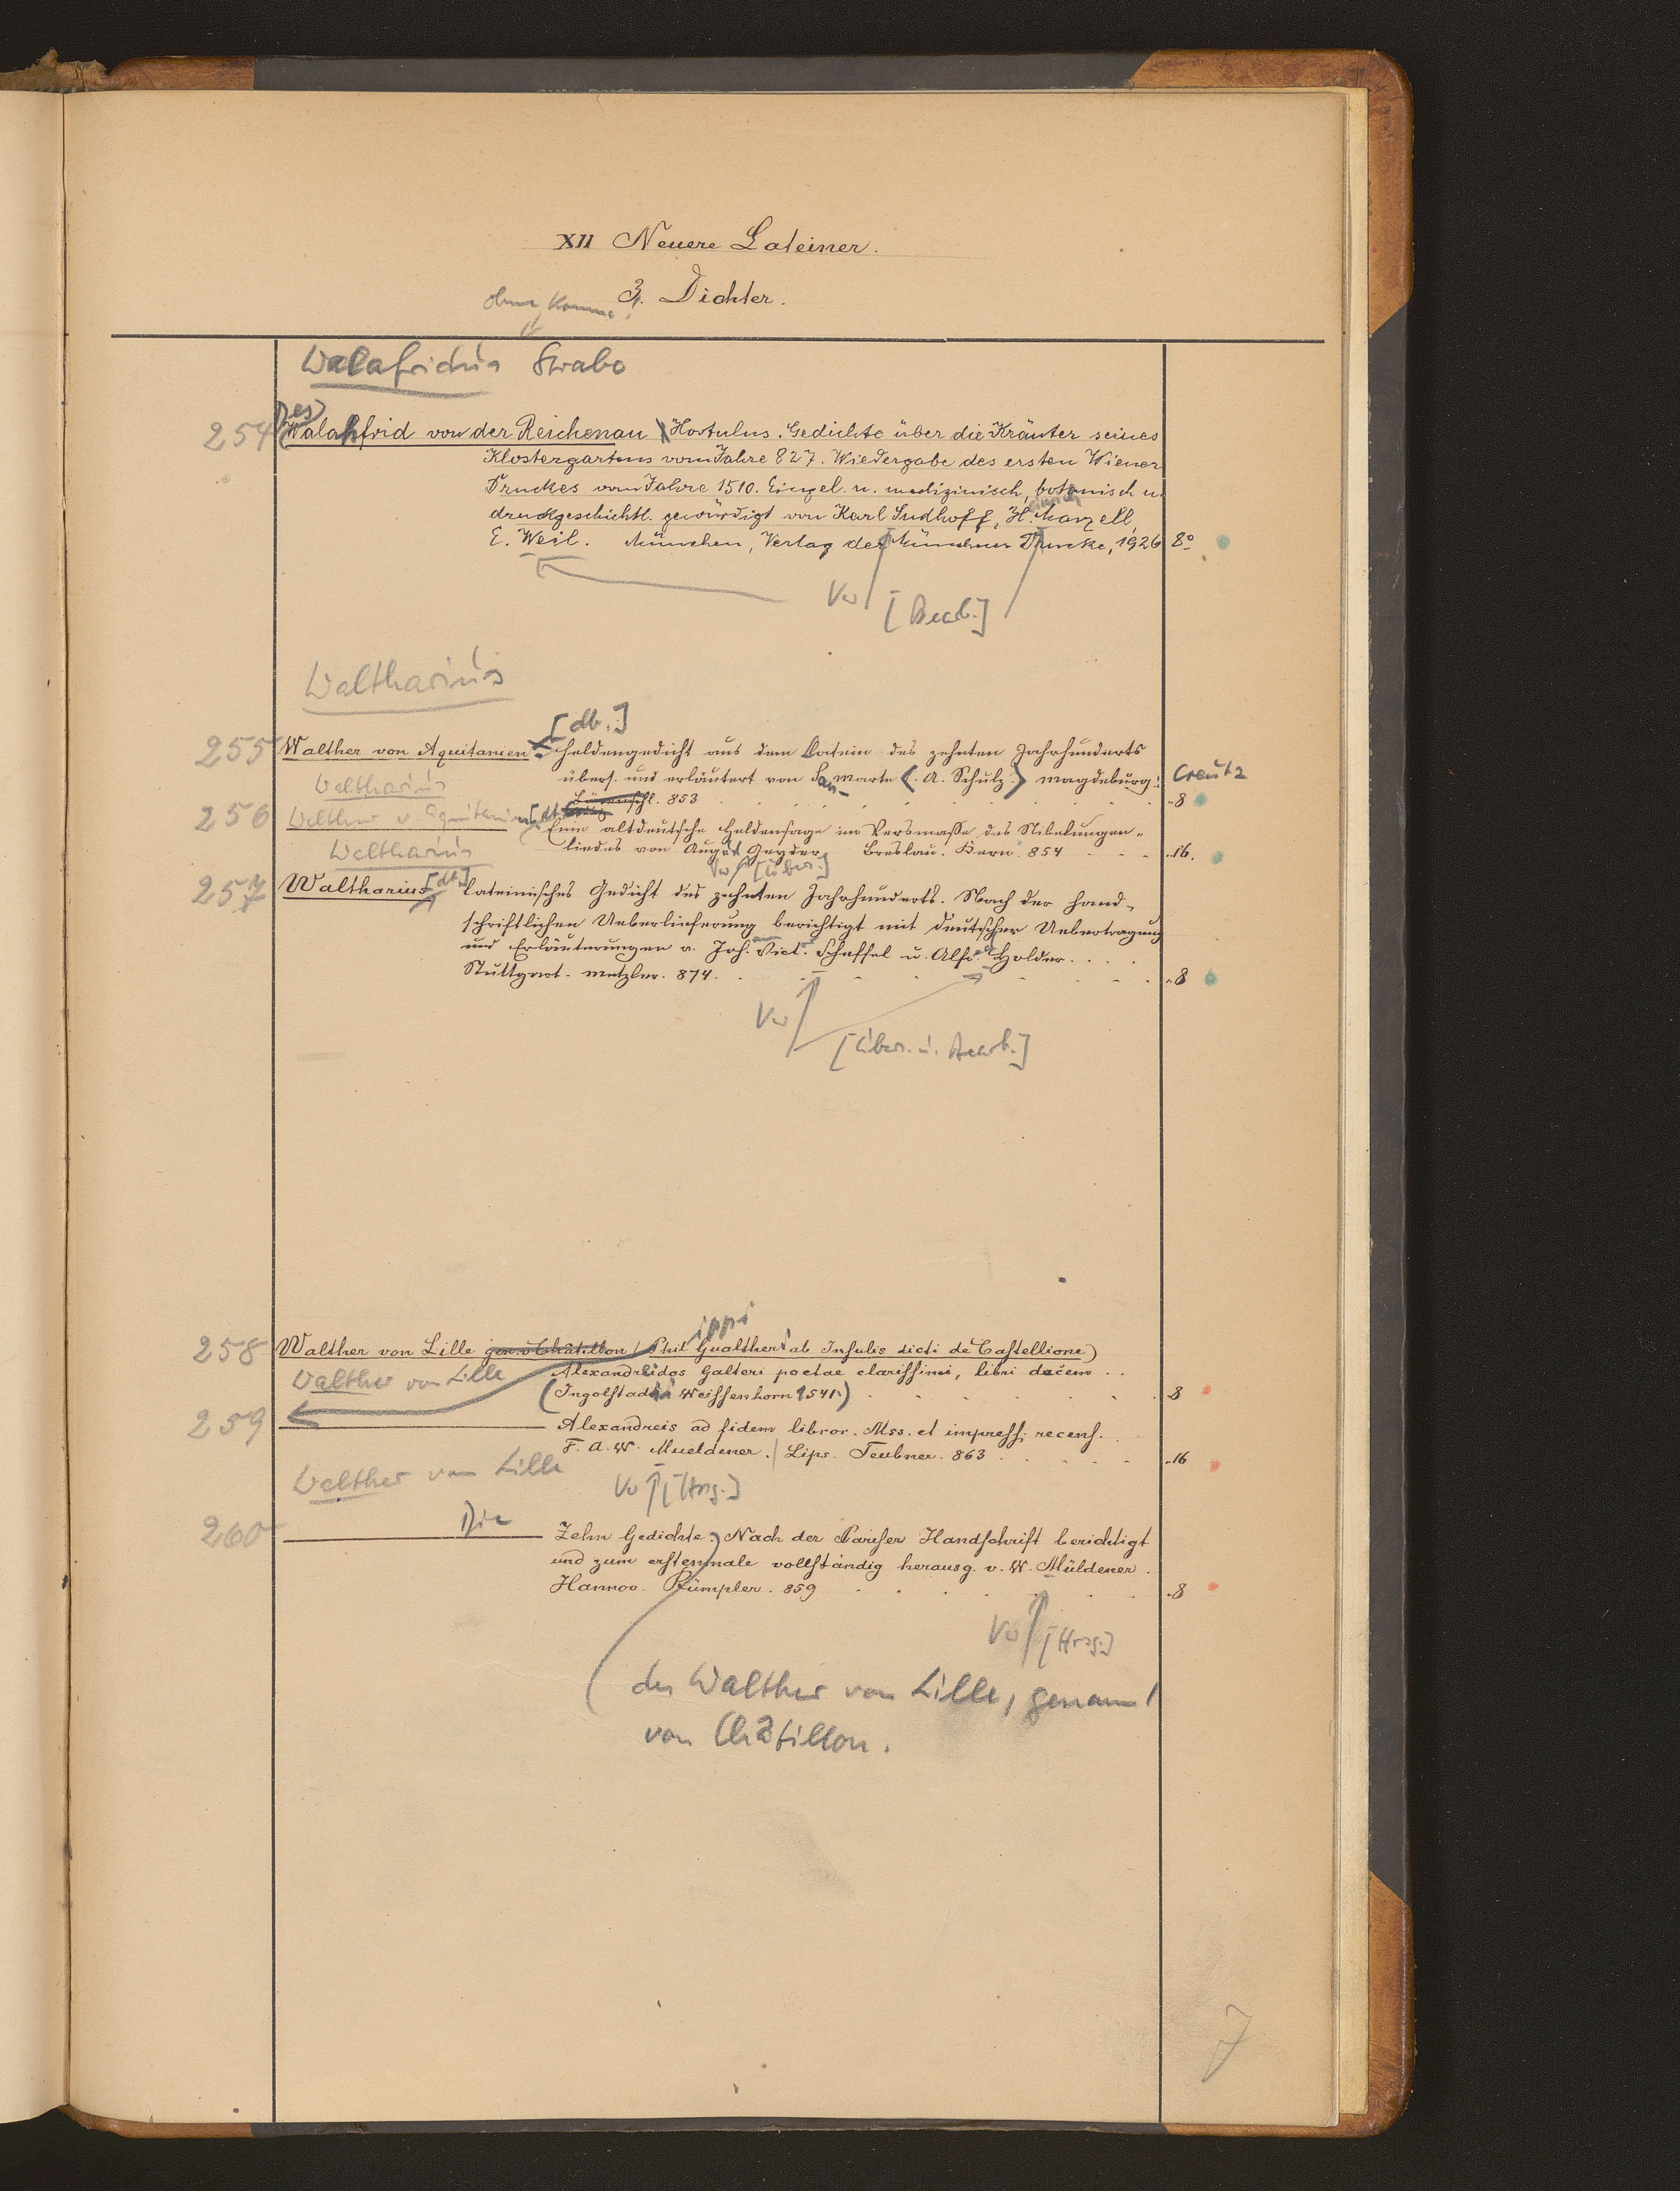 XII Neuere Lateiner.
3. Dichter.
ohne Komma!
Walafridus Strabo
Des
254 Walahfrid von der Reichenau Hortulus. Gedichte über die Kräuter seines
Klostergartens vom Jahre 827. Wiedergabe des ersten Wiener
Druckes vom Jahre 1510. Eingel. u. medizinisch, botanisch u.
druckgeschichtl. gewürdigt von Karl Sudhoff, H. Marzell,
E. Weil. München, Verlag der Münchner Drucke, 1926 8º
Vw [Bearb.]
Waltharius
[dt.]
255 Walther von Aquitanien. Heldengedicht aus dem Latein des zehnten Jahrhunderts
übers. und erläutert von San-marte (A. Schulz.) Magdeburg: Creutz
Waltharius
853 8
256 Walther v. Aquitanien [dt.]
Eine altdeutsche Heldensage im Versmaße des Nibelungen-
liedes von August Geyder Breslau. Kern 854 16.
Waltharius
Vw [Übers.]
257 Waltharius [dt.] lateinisches Gedicht des zehnten Jahrhunderts. Nach der hand-
schriftlichen Ueberlieferung berichtigt mit deutscher Uebertragung
und Erläuterungen v. Jos. Vict. Scheffel u. Alfr. Holder.
Stuttgart. Metzler. 874. 8
Vw [Übers. u. Bearb.]
ippi
258 Walther von Lille gen. v. Châtillon (Phil Gualtheri ab Insulis dicti de Castellione)
Walther von Lille Alexandreidos Galteri poetae clarissimi, libri decem
(Ingolstadii Weissenhorn 1541) 8
259 Alexandreis ad fidem libror. Mss. et impress. recens.
F. A. W. Mueldener. Lips. Teubner. 863 16
Walther von Lille
Vw [Hrsg.]
260 Die Zehn Gedichte. Nach der Pariser Handschrift berichtigt
und zum erstenmale vollständig herausg. v. W. Müldener.
Hannov. Rümpler. 859 8
Vw [Hrsg.]
des Walther von Lille, genannt
von Châtillon.